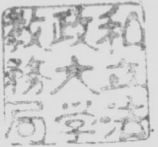 私立法
政大堂
教務局